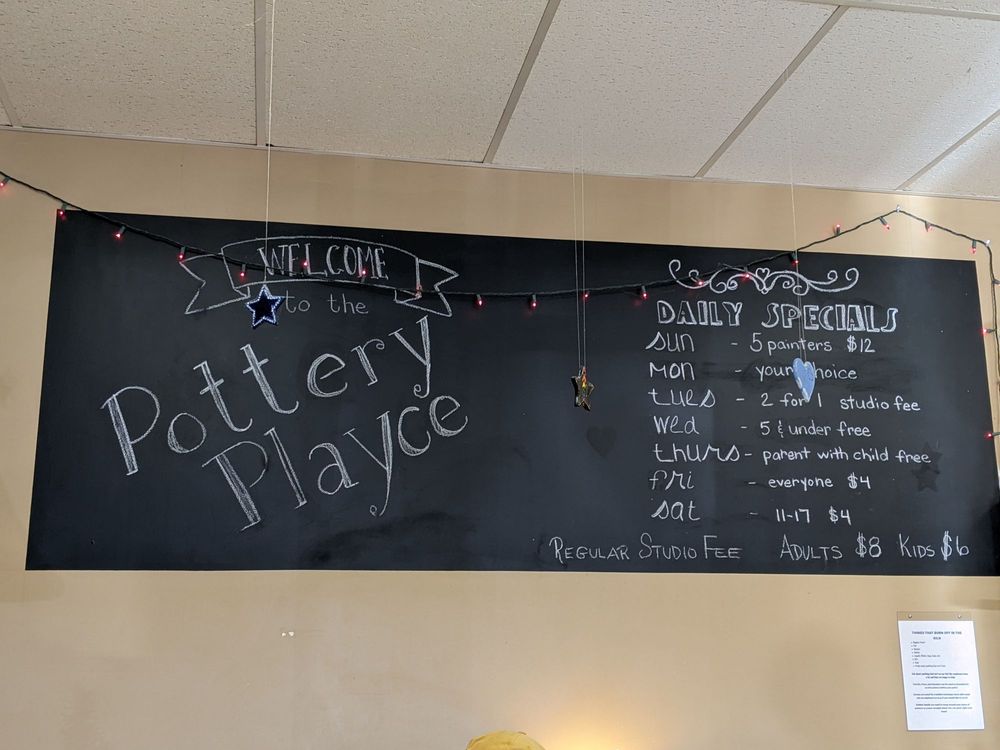 WELCOME
to the
Pottery
Playce
DAILY SPECIALS
sun - 5 painters $12
mon - your choice
tues - 2 for 1 studio fee
wed - 5 & under free
thurs - parent with child free
fri - everyone $4
sat - 11-17 $4
REGULAR STUDIO FEE ADULTS $8 KIDS $6
THINGS THAT BURN OFF IN THE
KILN